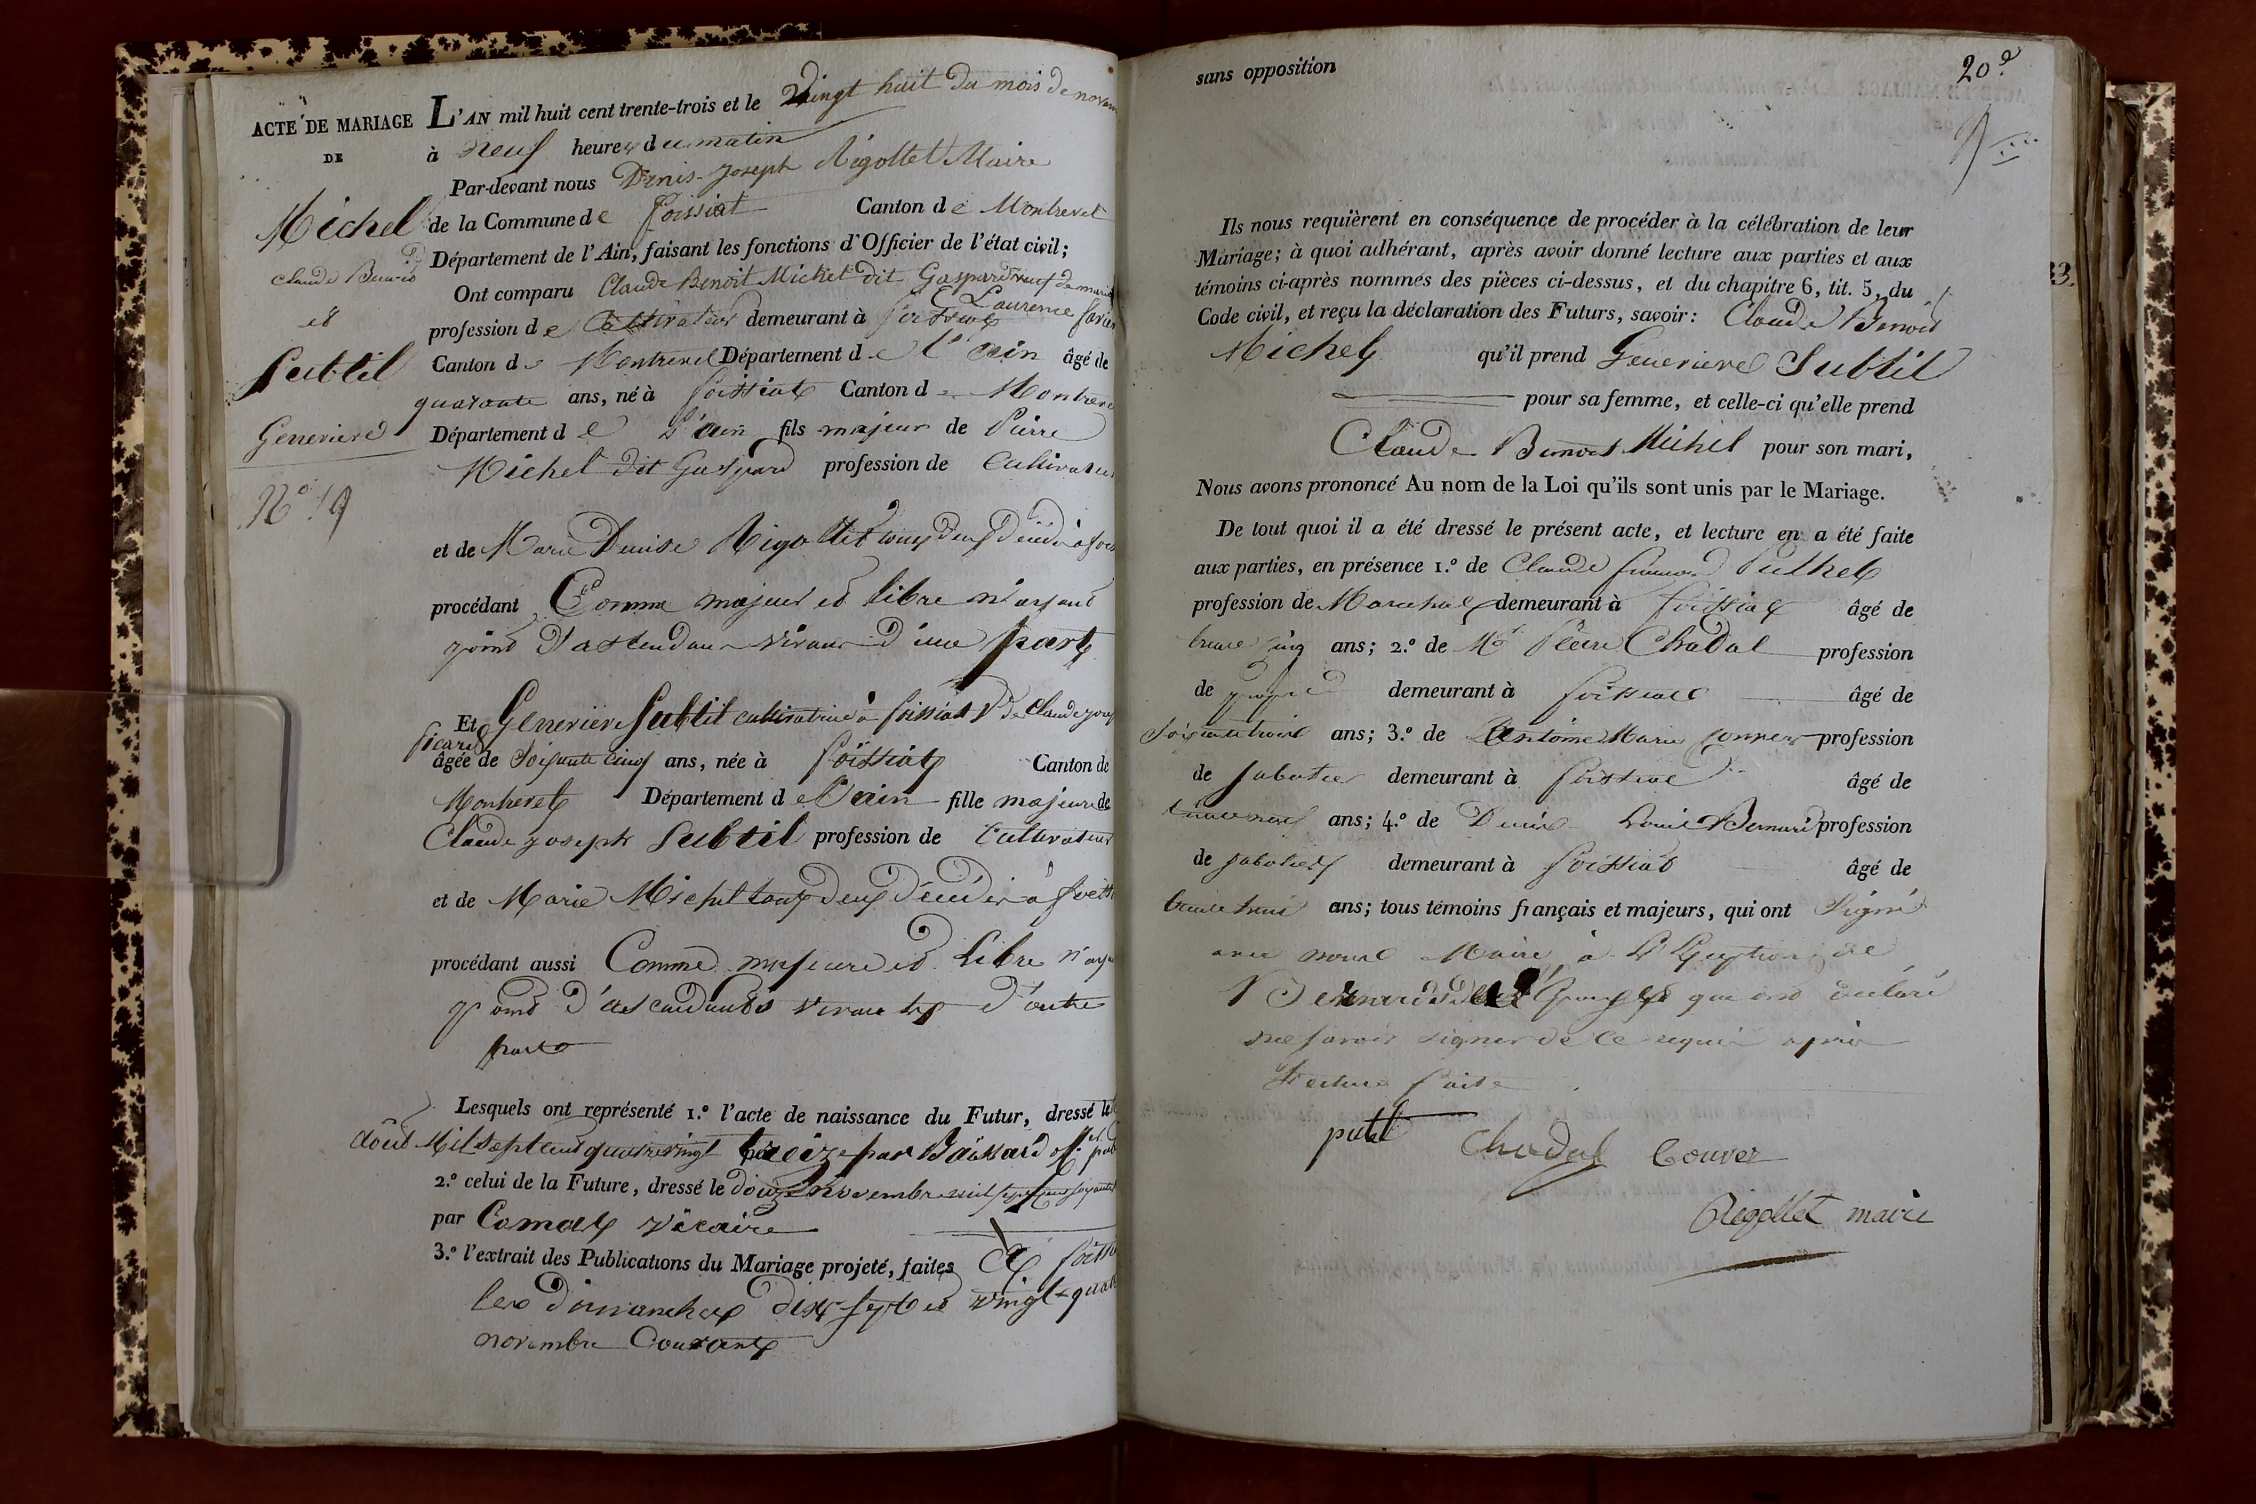 ACTE DE MARIAGE
DE
Michel
Claude Benoit
et
Subtil
Genevieve
N.º 19
L'AN mil huit cent trente-trois et le Vingt huit du mois de novem
à neuf heures du matin
Par-devant nous Denis-Joseph Rigollet Maire
de la Commune de foissiat Canton de Montrevel
Département de l'Ain, faisant les fonctions d'Officier de l'état civil;
Ont comparu Claude Benoit Michel dit Gaspard veuf de marie
Laurence
profession de Cultivateur demeurant à foissiat
Canton de Montrevel Département de l'ain âgé de
quarante ans, né à foissiat Canton de Montrevel
Département de l'ain fils majeur de Pierre
Michel dit Gaspard profession de Cultivateur
et de Marie Denise Rigollet tous deux décédés à fois
procédant Comme majeur et libre n'ayant
point d'ascendans vivans d'une part
Et Genevieve Subtil cultivatrice à foissiat Vᵉ de Claude josep
ficard
âgée de Soixante cinq ans, née à foissiat Canton de
Montrevel Département de l'ain fille majeure de
Claude joseph Subtil profession de Cultivateur
et de Marie Michel tous deux décédés à foissi
procédant aussi Comme majeure et libre n'aya
point d'ascendants vivants d'autre
part
Lesquels ont représenté 1.º l'acte de naissance du Futur, dressé le
août Mil sept cent quatre vingt treize par
2.º celui de la Future, dressé le douze novembre mil sept cent soixante
par Comas vicaire
3.º l'extrait des Publications du Mariage projeté, faites à foissi
les dimanches dix sept et vingt-quatre
novembre Courant
sans opposition
20.e
Ils nous requièrent en conséquence de procéder à la célébration de leur
Mariage; à quoi adhérant, après avoir donné lecture aux parties et aux
témoins ci-après nommés des pièces ci-dessus, et du chapitre 6, tit. 5, du
Code civil, et reçu la déclaration des Futurs, savoir: Claude Benoit
Michel qu'il prend Genevieve Subtil
pour sa femme, et celle-ci qu'elle prend
Claude Benoit Michel pour son mari,
Nous avons prononcé Au nom de la Loi qu'ils sont unis par le Mariage.
De tout quoi il a été dressé le présent acte, et lecture en a été faite
aux parties, en présence 1.º de Claude
profession de Marechal demeurant à foissiat âgé de
trente cinq ans; 2.º de Mʳ Pierre Chadal profession
de demeurant à foissiat âgé de
soixante trois ans; 3.º de Antoine Marie Couvert profession
de sabotier demeurant à foissiat âgé de
trente neuf ans; 4.º de Denis Louis Bernard profession
de sabotier demeurant à foissiat âgé de
trente trois ans; tous témoins français et majeurs, qui ont Signé
avec nous Maire à l'Exception de
Bernard et des Epoux qui ont déclaré
ne savoir signer de ce requis après
Lecture faite
Chadal Couver
Rigollet maire
33.